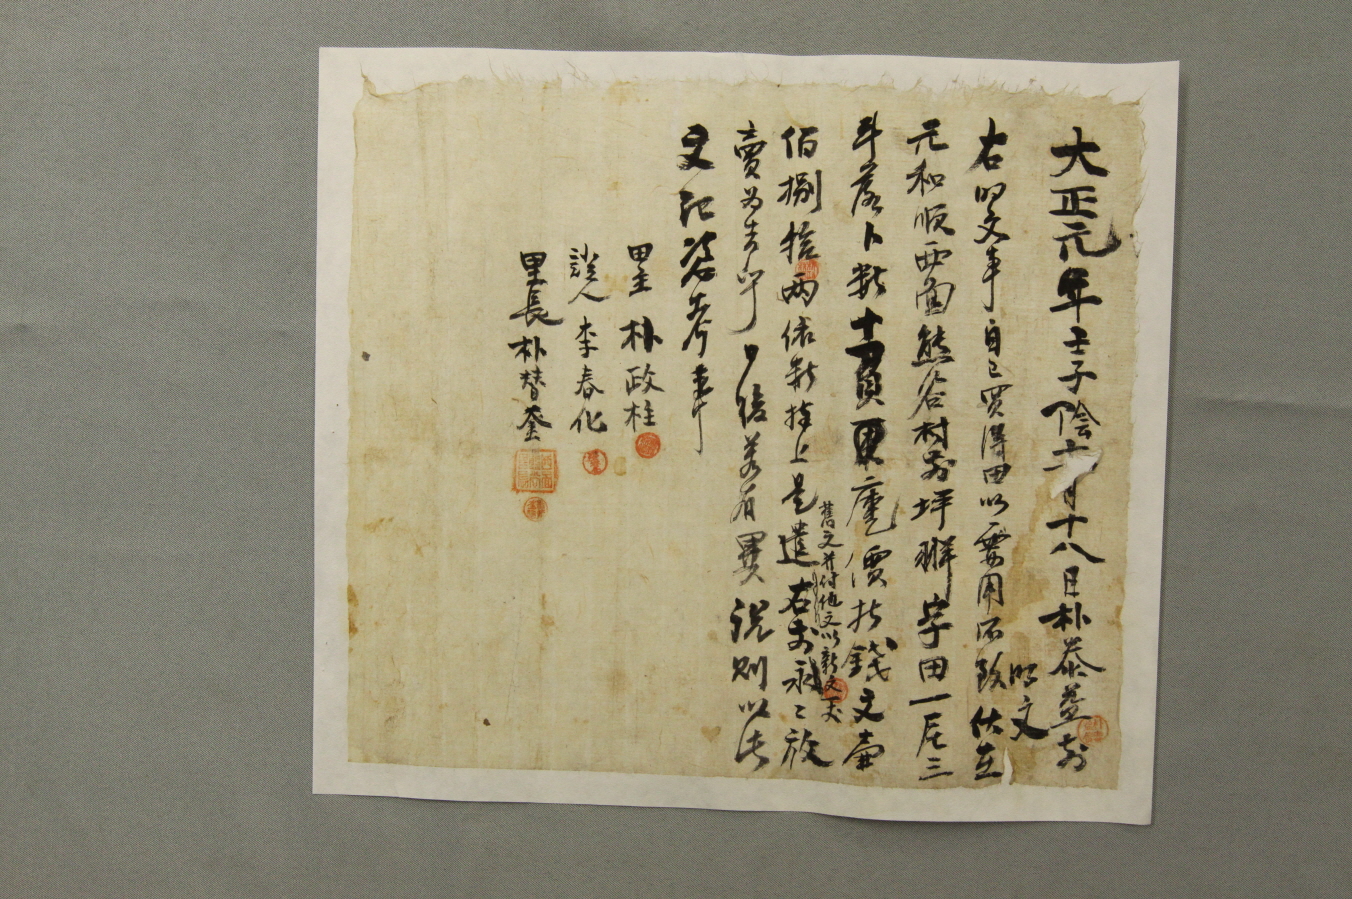 大正元年壬子陰十月十八日朴泰益前
明文
右明文事自己買得田以要用所致伏在
元和順西面熊谷村前坪 字田一㞐三
斗落卜數十一負 庫價折錢文壹
佰捌拾兩依數捧上是遣右前永永放
舊文幷付他文以新文一丈
賣爲去乎日後若有異說則以此
文記憑考事
田主 朴政柱
證人 李春化
里長 朴替奎